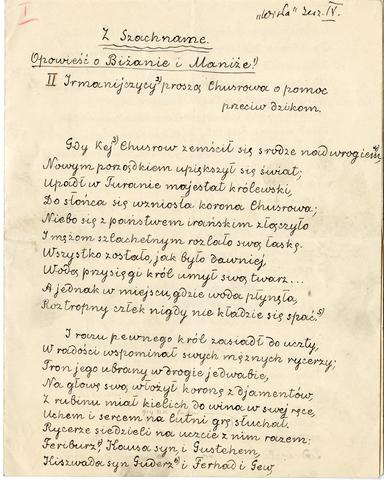 I
"Wisła" zesz. IV.
Z Szachname.
Opowieść o Biżanie i Maniże.¹)
II Irmanijczycy²) proszą Chusrowa o pomoc
przeciw dzikom.
Gdy Kej³) Chusrow zemścił się srodze nad wrogiem,⁴)
Nowym porządkiem upiększył się świat;
Upadł w Turanie majestat królewski,
Do słońca się wzniosła korona Chusrowa;
Niebo się z państwem irańskim złączyło
I mężom szlachetnym rozlało swą łaskę.
Wszystko zostało, jak było dawniej,
Wodą przysięgi król umył swą twarz...
A jednak w miejscu, gdzie woda płynęła,
Roztropny człek nigdy nie kładzie się spać.⁵)
I razu pewnego król zasiadł do uczty,
W radości wspominał swych mężnych rycerzy;
Tron jego ubrany w drogie jedwabie,
Na głowę swą włożył koronę z djamentów,
Z rubinu miał kielich do wina w swej ręce,
Uchem i sercem na lutni grę słuchał.
Rycerze siedzieli na uczcie z nim razem:
Feriburz, Kausa syn i Gustehem,
Kiszwada syn Guderz i Ferhad i Gew,